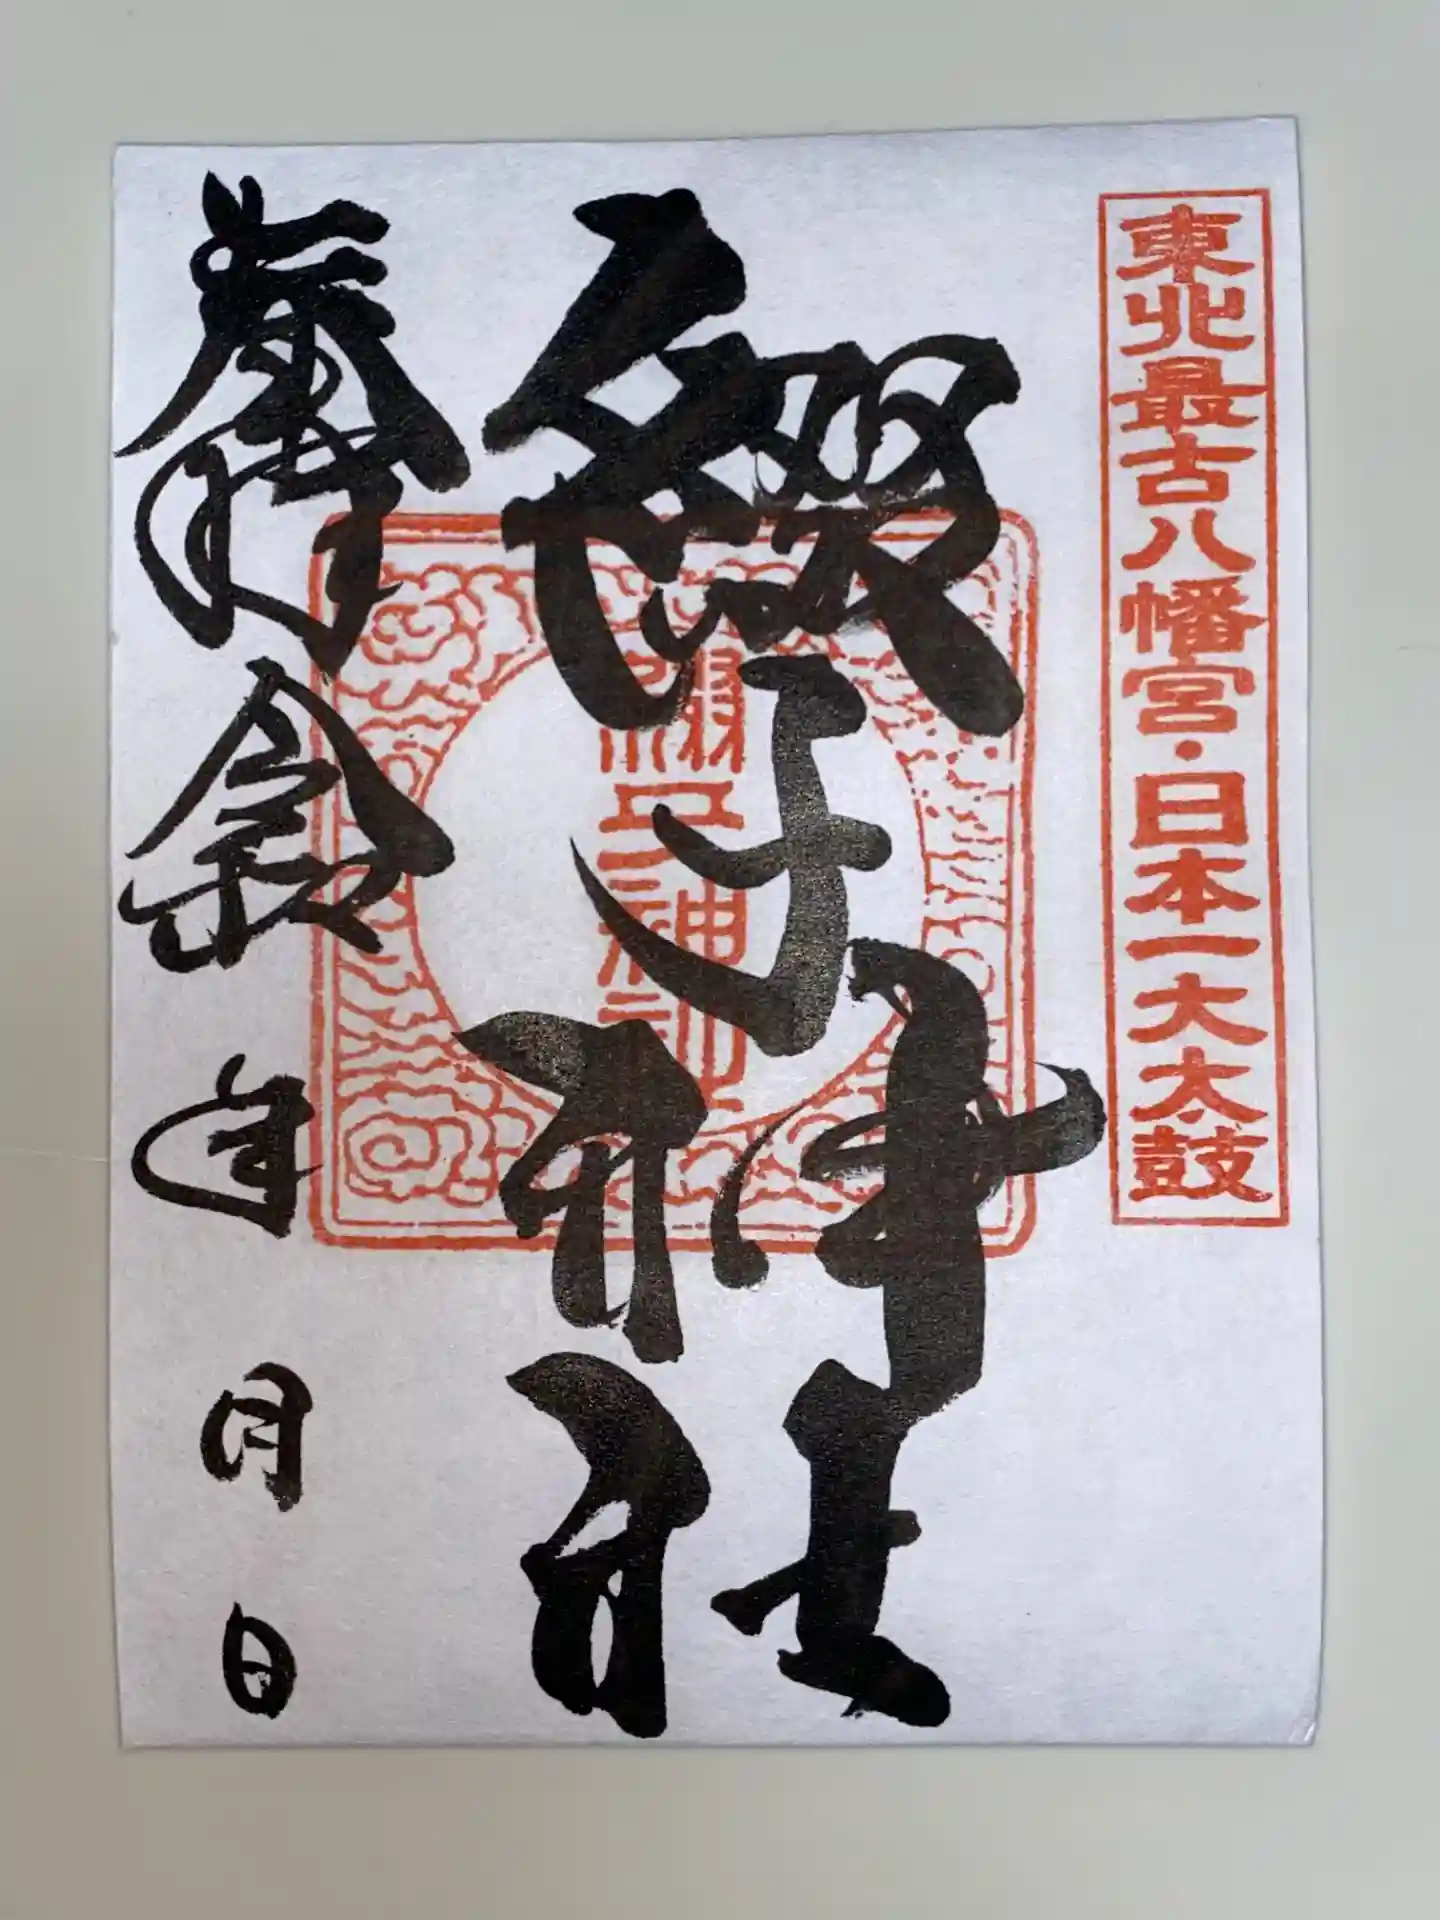 東北最古八幡宮・日本一大太鼓
綴子神社
奉拝 令和 年 月 日